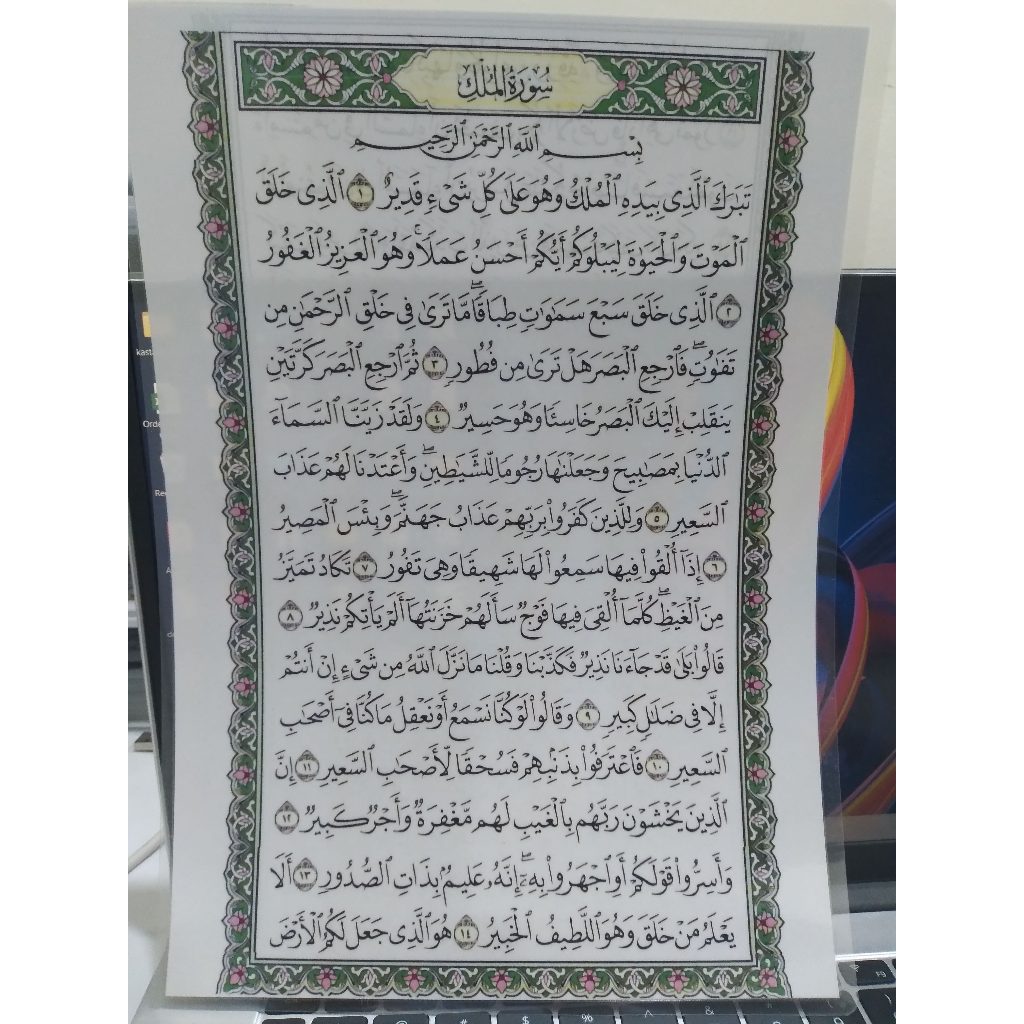 سُورَةُ الْمُلْكِ
بِسْمِ اللَّهِ الرَّحْمَٰنِ الرَّحِيمِ
تَبَارَكَ الَّذِي بِيَدِهِ الْمُلْكُ وَهُوَ عَلَىٰ كُلِّ شَيْءٍ قَدِيرٌ ١ الَّذِي خَلَقَ
الْمَوْتَ وَالْحَيَوٰةَ لِيَبْلُوَكُمْ أَيُّكُمْ أَحْسَنُ عَمَلًا ۚ وَهُوَ الْعَزِيزُ الْغَفُورُ
٢ الَّذِي خَلَقَ سَبْعَ سَمَٰوَٰتٍ طِبَاقًا ۖ مَّا تَرَىٰ فِي خَلْقِ الرَّحْمَٰنِ مِن
تَفَٰوُتٍ ۖ فَارْجِعِ الْبَصَرَ هَلْ تَرَىٰ مِن فُطُورٍ ٣ ثُمَّ ارْجِعِ الْبَصَرَ كَرَّتَيْنِ
يَنقَلِبْ إِلَيْكَ الْبَصَرُ خَاسِئًا وَهُوَ حَسِيرٌ ٤ وَلَقَدْ زَيَّنَّا السَّمَاءَ
الدُّنْيَا بِمَصَٰبِيحَ وَجَعَلْنَٰهَا رُجُومًا لِّلشَّيَٰطِينِ ۖ وَأَعْتَدْنَا لَهُمْ عَذَابَ
السَّعِيرِ ٥ وَلِلَّذِينَ كَفَرُوا۟ بِرَبِّهِمْ عَذَابُ جَهَنَّمَ ۖ وَبِئْسَ الْمَصِيرُ
٦ إِذَآ أُلْقُوا۟ فِيهَا سَمِعُوا۟ لَهَا شَهِيقًا وَهِيَ تَفُورُ ٧ تَكَادُ تَمَيَّزُ
مِنَ الْغَيْظِ ۖ كُلَّمَآ أُلْقِيَ فِيهَا فَوْجٌ سَأَلَهُمْ خَزَنَتُهَآ أَلَمْ يَأْتِكُمْ نَذِيرٌ ٨
قَالُوا۟ بَلَىٰ قَدْ جَآءَنَا نَذِيرٌ فَكَذَّبْنَا وَقُلْنَا مَا نَزَّلَ اللَّهُ مِن شَيْءٍ إِنْ أَنتُمْ
إِلَّا فِي ضَلَٰلٍ كَبِيرٍ ٩ وَقَالُوا۟ لَوْ كُنَّا نَسْمَعُ أَوْ نَعْقِلُ مَا كُنَّا فِيٓ أَصْحَٰبِ
السَّعِيرِ ١٠ فَاعْتَرَفُوا۟ بِذَنۢبِهِمْ فَسُحْقًا لِّأَصْحَٰبِ السَّعِيرِ ١١ إِنَّ
الَّذِينَ يَخْشَوْنَ رَبَّهُم بِالْغَيْبِ لَهُم مَّغْفِرَةٌ وَأَجْرٌ كَبِيرٌ ١٢
وَأَسِرُّوا۟ قَوْلَكُمْ أَوِ اجْهَرُوا۟ بِهِۦٓ ۖ إِنَّهُۥ عَلِيمٌۢ بِذَاتِ الصُّدُورِ ١٣ أَلَا
يَعْلَمُ مَنْ خَلَقَ وَهُوَ اللَّطِيفُ الْخَبِيرُ ١٤ هُوَ الَّذِي جَعَلَ لَكُمُ الْأَرْضَ